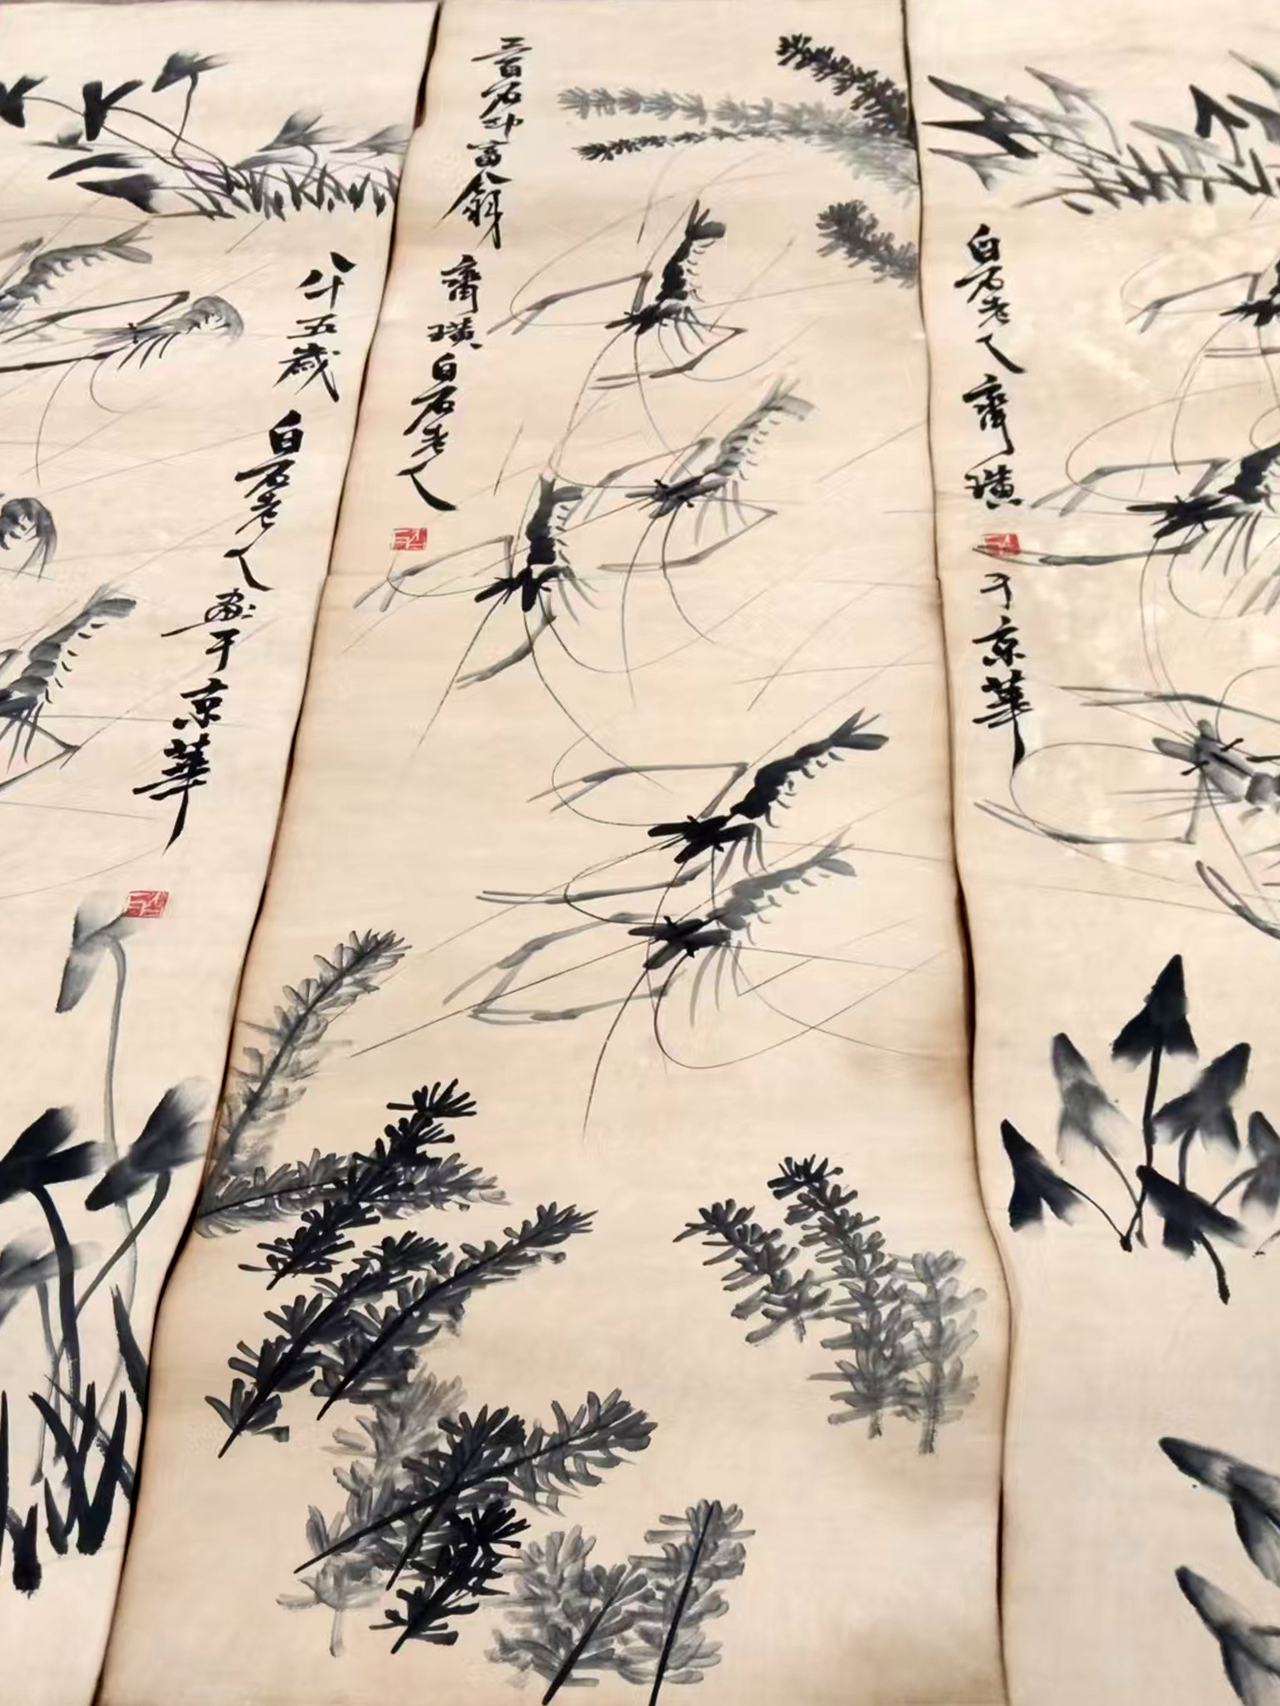 三百石印富翁
齊璜白石老人
八十五歲
白石老人画于京華
白石老人齊璜
于京華